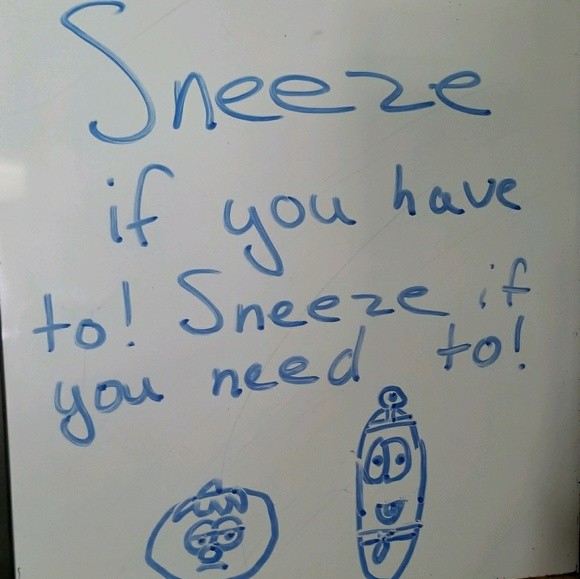 Sneeze
if you have
to! Sneeze if
you need to!